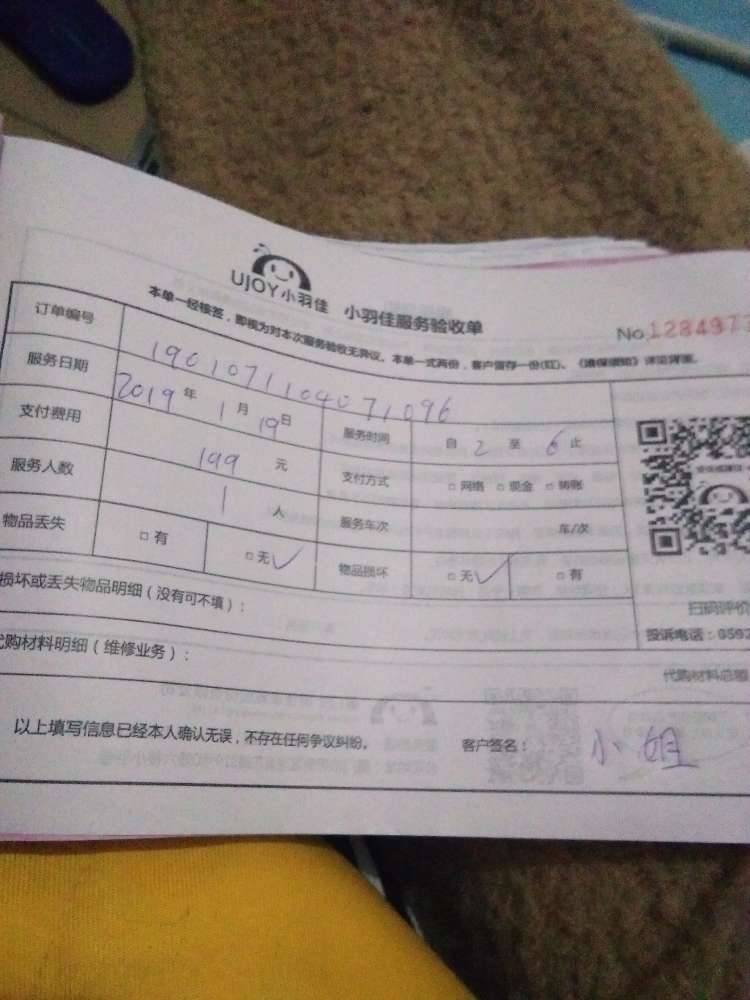 UJOY小羽佳 小羽佳服务验收单
No.128497
本单一经核签，即视为对本次服务验收无异议。本单一式两份，客户留存一份(红)。
订单编号 1901071104071096
服务日期 2019年1月19日 服务时间 自2至6止
支付费用 199元 支付方式 □网络 □现金 □转账
服务人数 1人 服务车次 车/次
物品丢失 □有 □无✓ 物品损坏 □无✓ □有
扫码评价
损坏或丢失物品明细（没有可不填）：
投诉电话：0592
代购材料明细（维修业务）：
代购材料总额
以上填写信息已经本人确认无误，不存在任何争议纠纷。 客户签名：小姐